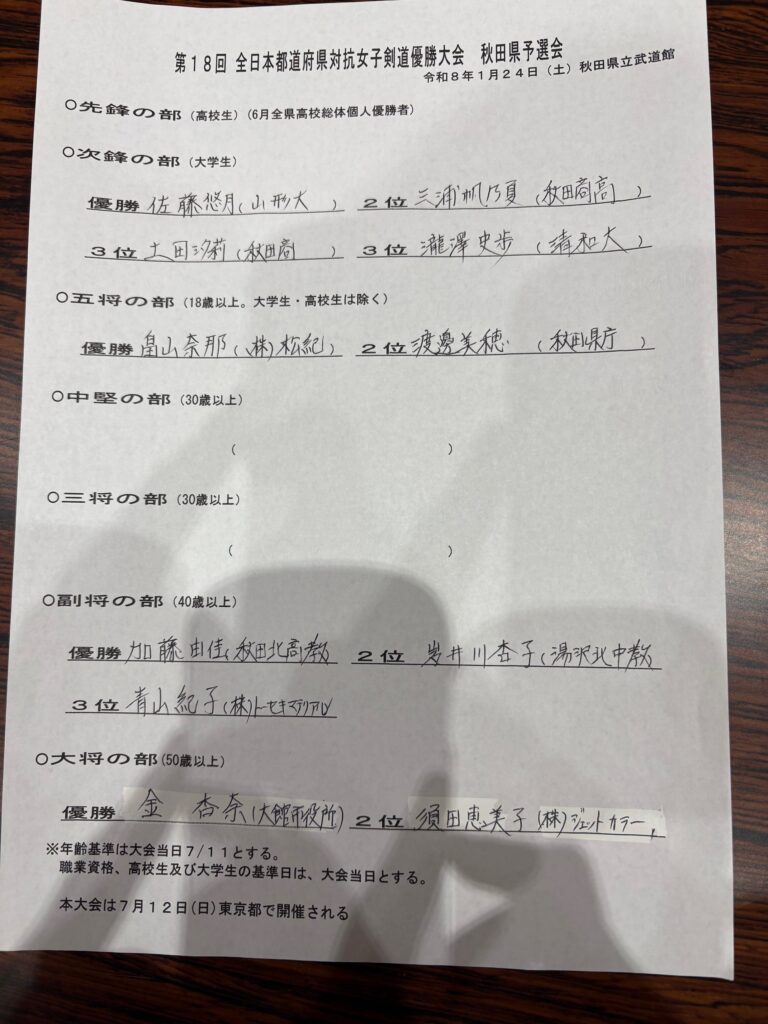 第18回 全日本都道府県対抗女子剣道優勝大会 秋田県予選会
令和8年1月24日（土）秋田県立武道館
○先鋒の部（高校生）（6月全県高校総体個人優勝者）
○次鋒の部（大学生）
優勝 佐藤悠月（山形大 ） 2位 三浦帆乃夏（秋田商高 ）
3位 土田汐莉（秋田商 ） 3位 瀧澤史歩（清和大 ）
○五将の部（18歳以上。大学生・高校生は除く）
優勝 畠山奈那（（株）松紀 ） 2位 渡邊美穂（秋田県庁 ）
○中堅の部（30歳以上）
（ ）
○三将の部（30歳以上）
（ ）
○副将の部（40歳以上）
優勝 加藤由佳（秋田北高教 2位 岩井川杏子（湯沢北中教
3位 青山紀子（（株）トーセキマテリアル
○大将の部（50歳以上）
優勝 金 杏奈（大館市役所） 2位 須田恵美子（（株）ジェットカラー）
※年齢基準は大会当日7/11とする。
職業資格、高校生及び大学生の基準日は、大会当日とする。
本大会は7月12日(日)東京都で開催される